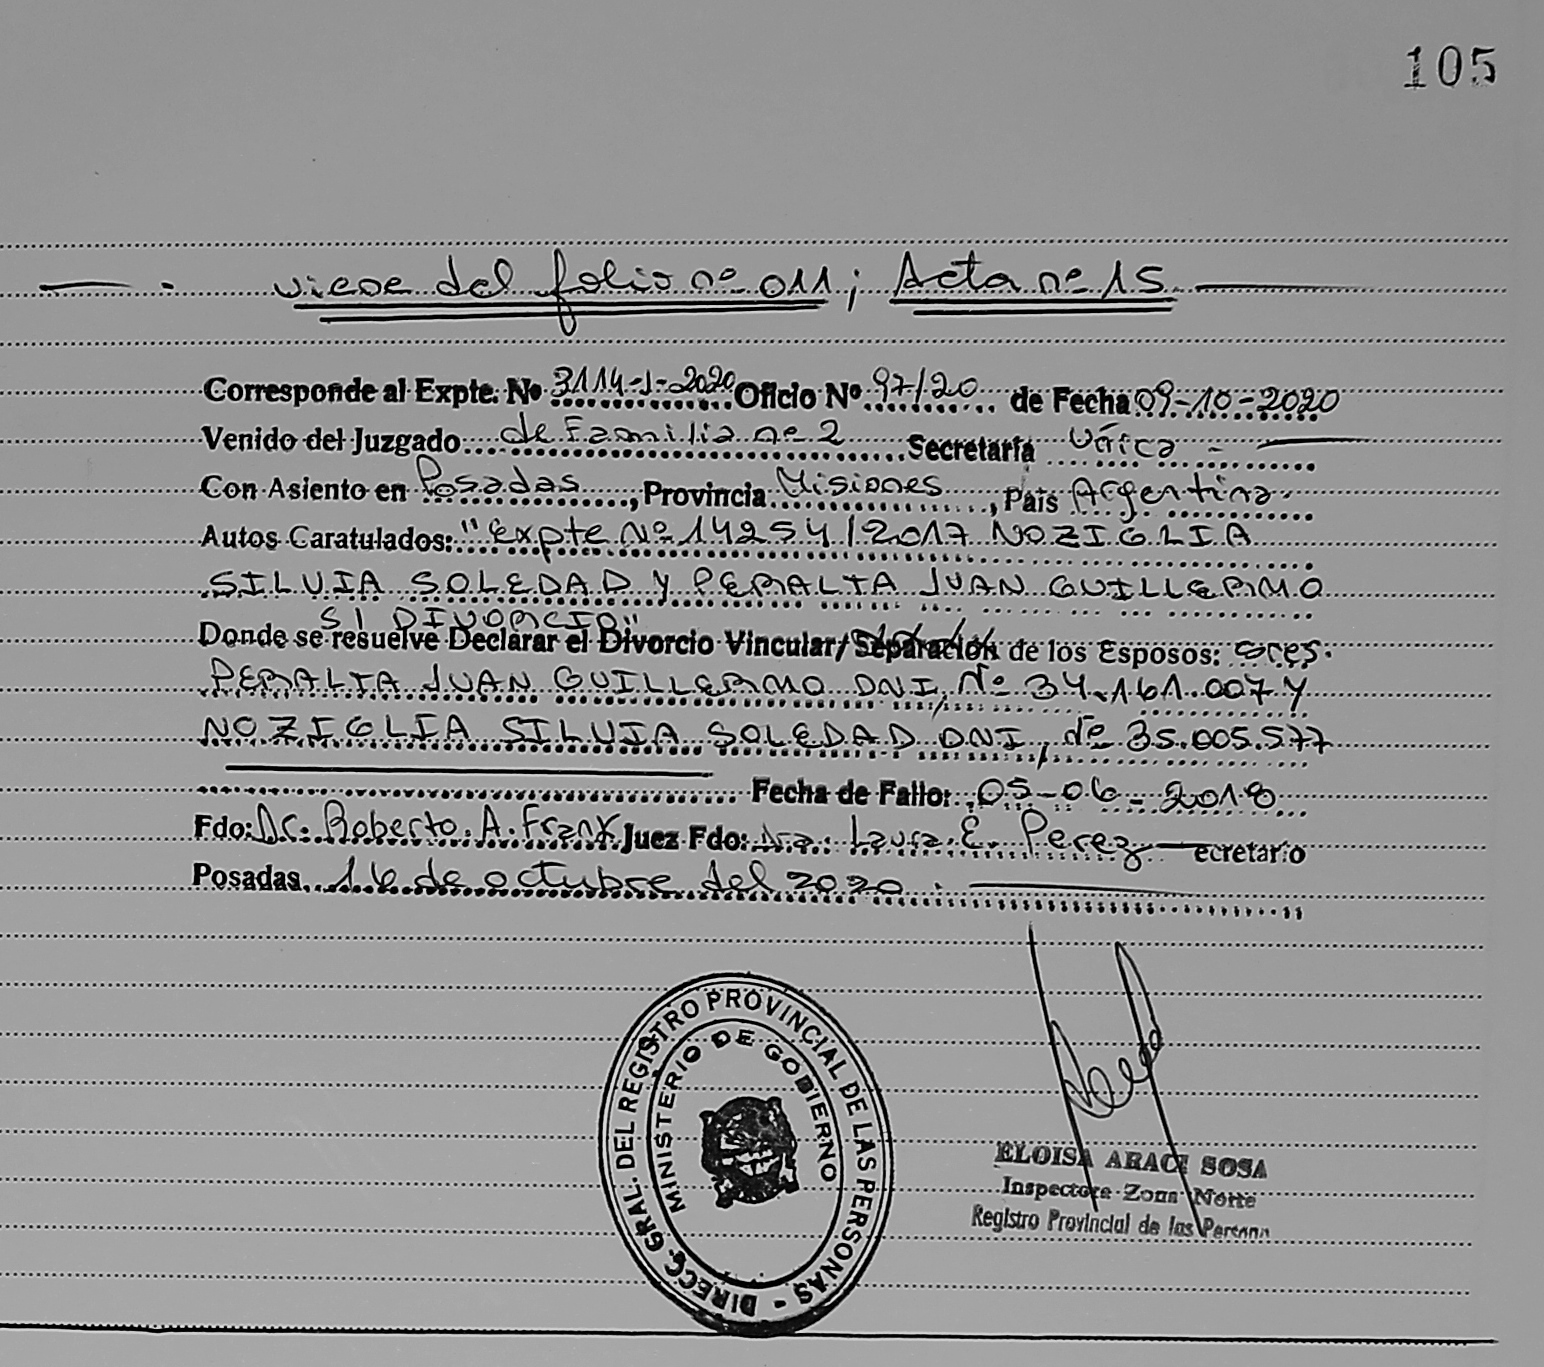 105
viene del folio nº 011; Acta nº 15
Corresponde al Expte. Nº 3114-J-2020 Oficio Nº 97/20 de Fecha 09-10-2020
Venido del Juzgado de Familia nº 2 Secretaría Única -
Con Asiento en Posadas, Provincia Misiones, País Argentina
Autos Caratulados: "Expte Nº 14254/2017 NOZIGLIA
SILVIA SOLEDAD Y PERALTA JUAN GUILLERMO
S/ DIVORCIO"
Donde se resuelve Declarar el Divorcio Vincular/ Separación de los Esposos:
PERALTA JUAN GUILLERMO DNI, Nº 34.161.007 Y
NOZIGLIA SILVIA SOLEDAD DNI, nº 35.005.577
Fecha de Fallo: 05-06-2018
Fdo: Dr. Roberto. A. Frank Juez Fdo: Dra. Laura E. Perez ecretario
Posadas, 16 de octubre del 2020.
DIRECC. GRAL. DEL REGISTRO PROVINCIAL DE LAS PERSONAS -
MINISTERIO DE GOBIERNO
ELOISA ARACI SOSA
Inspectora Zona Norte
Registro Provincial de las Person